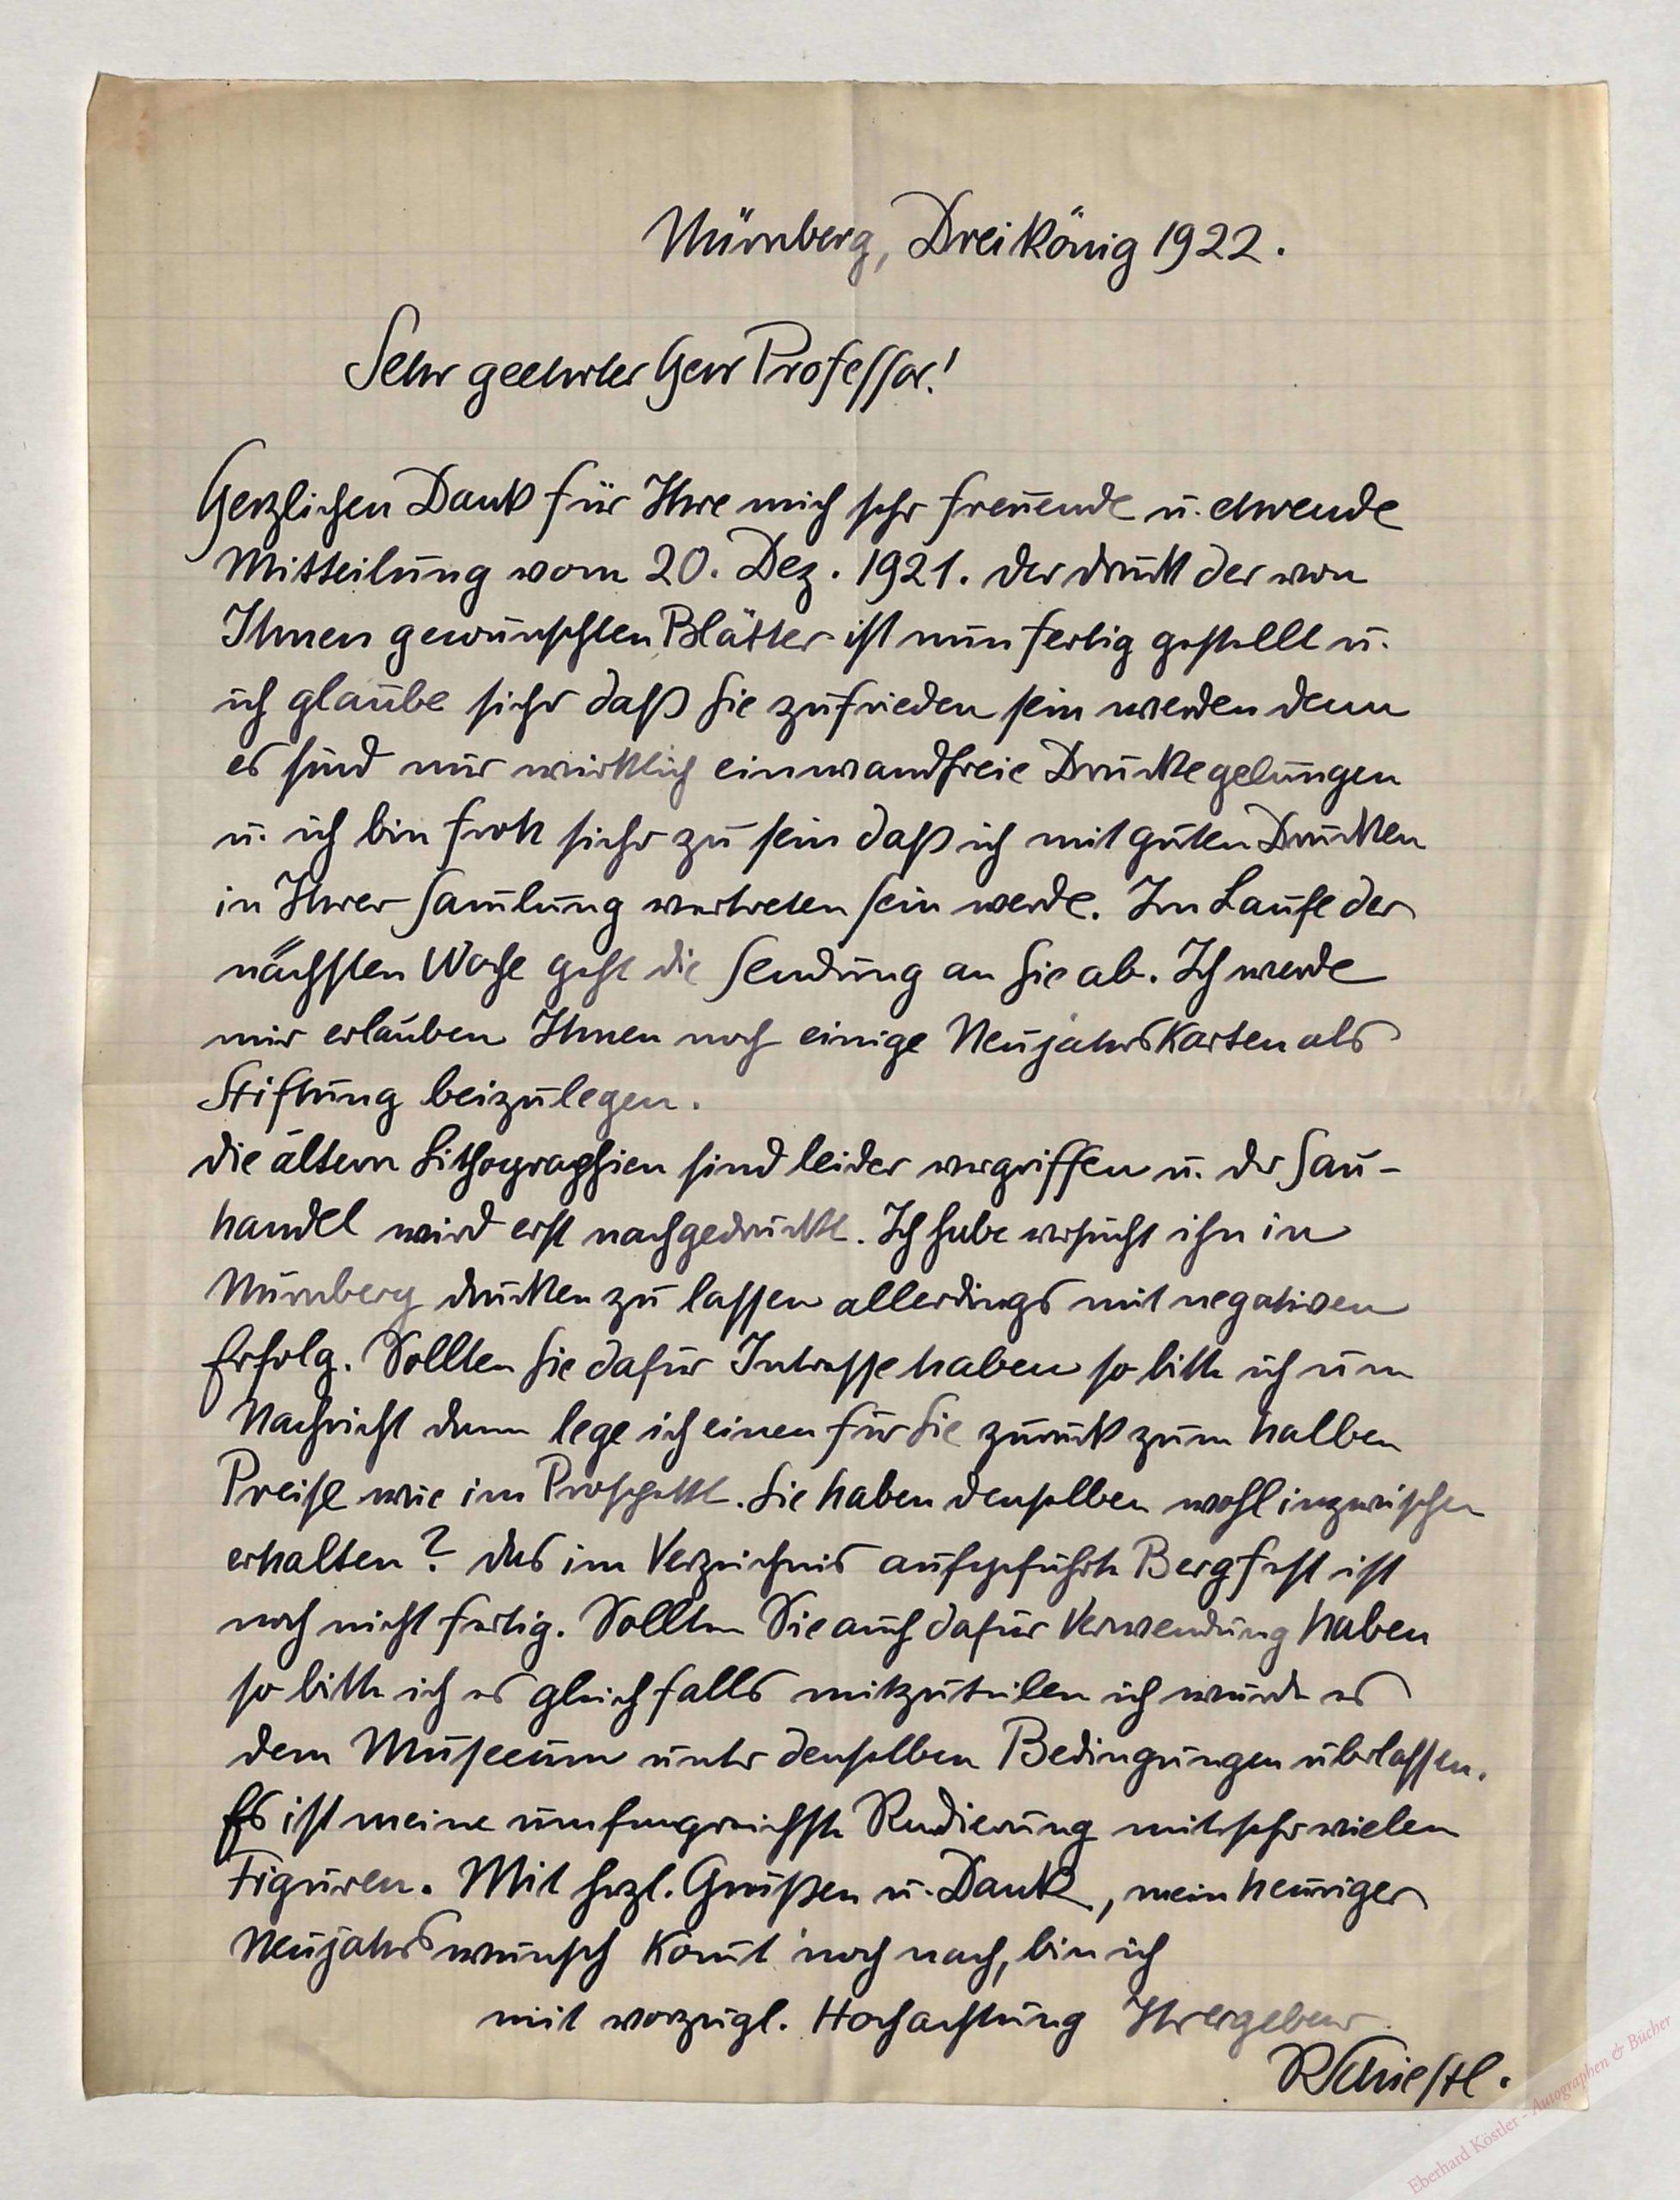 Nürnberg, Dreikönig 1922.
Sehr geehrter Herr Professor!
Herzlichen Dank für Ihre mich sehr freuende u. ehrende
Mitteilung vom 20. Dez. 1921. Der Druck der von
Ihnen gewünschten Blätter ist nun fertig gestellt u.
ich glaube sicher daß Sie zufrieden sein werden denn
es sind nur wirklich einwandfreie Drucke gelungen
u. ich bin froh sicher zu sein daß ich mit guten Drucken
in Ihrer Sam̄lung vertreten sein werde. Im Laufe der
nächsten Woche geht die Sendung an Sie ab. Ich werde
mir erlauben Ihnen noch einige Neujahrskarten als
Stiftung beizulegen.
Die ältern Lithographien sind leider vergriffen u. der Sau-
handel wird erst nachgedruckt. Ich habe versucht ihn in
Nürnberg drucken zu lassen allerdings mit negativen
Erfolg. Sollten Sie dafür Intresse haben so bitte ich um
Nachricht dann lege ich einen für Sie zurück zum halben
Preise wie im Prospekt. Sie haben denselben wohl inzwischen
erhalten? Das im Verzeichnis aufgeführte Bergfest ist
noch nicht fertig. Sollten Sie auch dafür Verwendung haben
so bitte ich es gleichfalls mitzuteilen ich würde es
dem Museeum unter denselben Bedingungen überlassen.
Es ist meine umfangreichste Radierung mit sehr vielen
Figuren. Mit herzl. Grüßen u. Dank, mein heuriger
Neujahrswunsch kom̄t noch nach, bin ich
mit vorzügl. Hochachtung Ihr ergebener
RSchiestl.
Eberhard Köstler - Autographen & Bücher